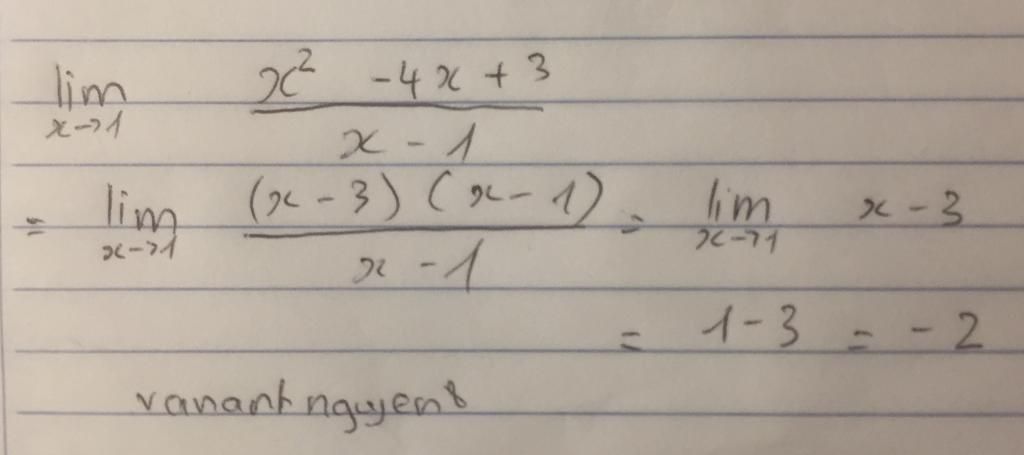 lim x→1 x² -4x + 3 / x - 1
= lim x→1 (x - 3) (x - 1) / x - 1 = lim x→1 x - 3
= 1 - 3 = - 2
vananhnguyen8